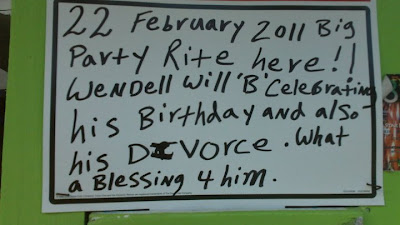 22 February 2011 Big
Party Rite here!!
Wendell Will 'B' Celebrating
his Birthday and also
his DIVORCE. What
a Blessing 4 him.